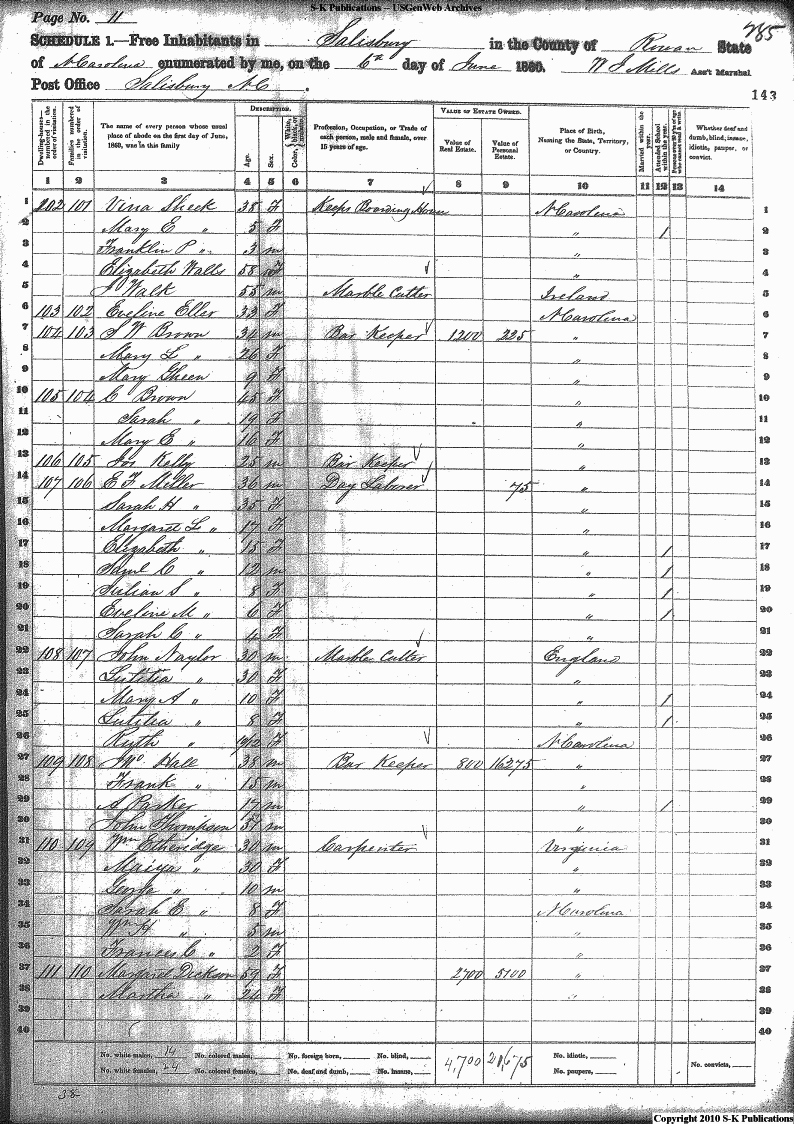 S-K Publications – USGenWeb Archives
Page No. 11
785
SCHEDULE 1.—Free Inhabitants in Salisbury in the County of Rowan State
of N Carolina enumerated by me, on the 6th day of June 1860. W J Mills Ass't Marshal
Post Office Salisbury N C.
143
Dwelling-houses—numbered in the order of visitation.
Families numbered in the order of visitation.
The name of every person whose usual place of abode on the first day of June, 1860, was in this family
DESCRIPTION.
Age.
Sex.
Color, White, black, or mulatto.
Profession, Occupation, or Trade of each person, male and female, over 15 years of age.
VALUE OF ESTATE OWNED.
Value of Real Estate.
Value of Personal Estate.
Place of Birth, Naming the State, Territory, or Country.
Married within the year.
Attended School within the year.
Persons over 20 y'rs of age who cannot read & write.
Whether deaf and dumb, blind, insane, idiotic, pauper, or convict.
1 2 3 4 5 6 7 8 9 10 11 12 13 14
1 202 101 Vina Sheek 38 F Keeps Boarding House N Carolina 1
2 Mary E " 5 F " / 2
3 Franklin P " 3 m " 3
4 Elizabeth Walls 58 F " 4
5 Walk 55 m Marble Cutter Ireland 5
6 103 102 Eveline Eller 33 F N Carolina 6
7 104 103 S W Brown 34 m Bar Keeper 1200 225 " 7
8 Mary L " 26 F " 8
9 Mary Gheen 9 F " 9
10 105 104 C Brown 45 F " 10
11 Sarah " 19 F " 11
12 Mary E " 16 F " 12
13 106 105 Jos Kelly 25 m Bar Keeper " 13
14 107 106 E F Miller 36 m Day Laborer 75 " 14
15 Sarah H " 35 F " 15
16 Margaret L " 17 F " 16
17 Elizabeth " 15 F " / 17
18 Saml C " 12 m " / 18
19 Julian S " 8 F " / 19
20 Eveline M " 6 F " / 20
21 Sarah C " 4 F " 21
22 108 107 John Naylor 30 m Marble Cutter England 22
23 Lutitia " 30 F " 23
24 Mary A " 10 F " / 24
25 Lutitia " 8 F " / 25
26 Ruth " 9/12 F N Carolina 26
27 109 108 Jno Hall 38 m Bar Keeper 800 16275 " 27
28 Frank " 15 m " 28
29 A Parker 17 m " / 29
30 John Thompson 37 m " 30
31 110 109 Wm Etheridge 30 m Carpenter Virginia 31
32 Maiya " 30 F " 32
33 George " 10 m " 33
34 Sarah E " 8 F N Carolina 34
35 Wm H " 5 m " 35
36 Frances C " 2 F " 36
37 111 110 Margaret Dickson 59 F 2700 5100 " 37
38 Martha " 24 F " 38
39 39
40 40
No. white males, 14 No. colored males, No. foreign born, No. blind, 4,700 21,675 No. idiotic,
No. white females, 24 No. colored females, No. deaf and dumb, No. insane, No. paupers, No. convicts,
38
Copyright 2010 S-K Publications